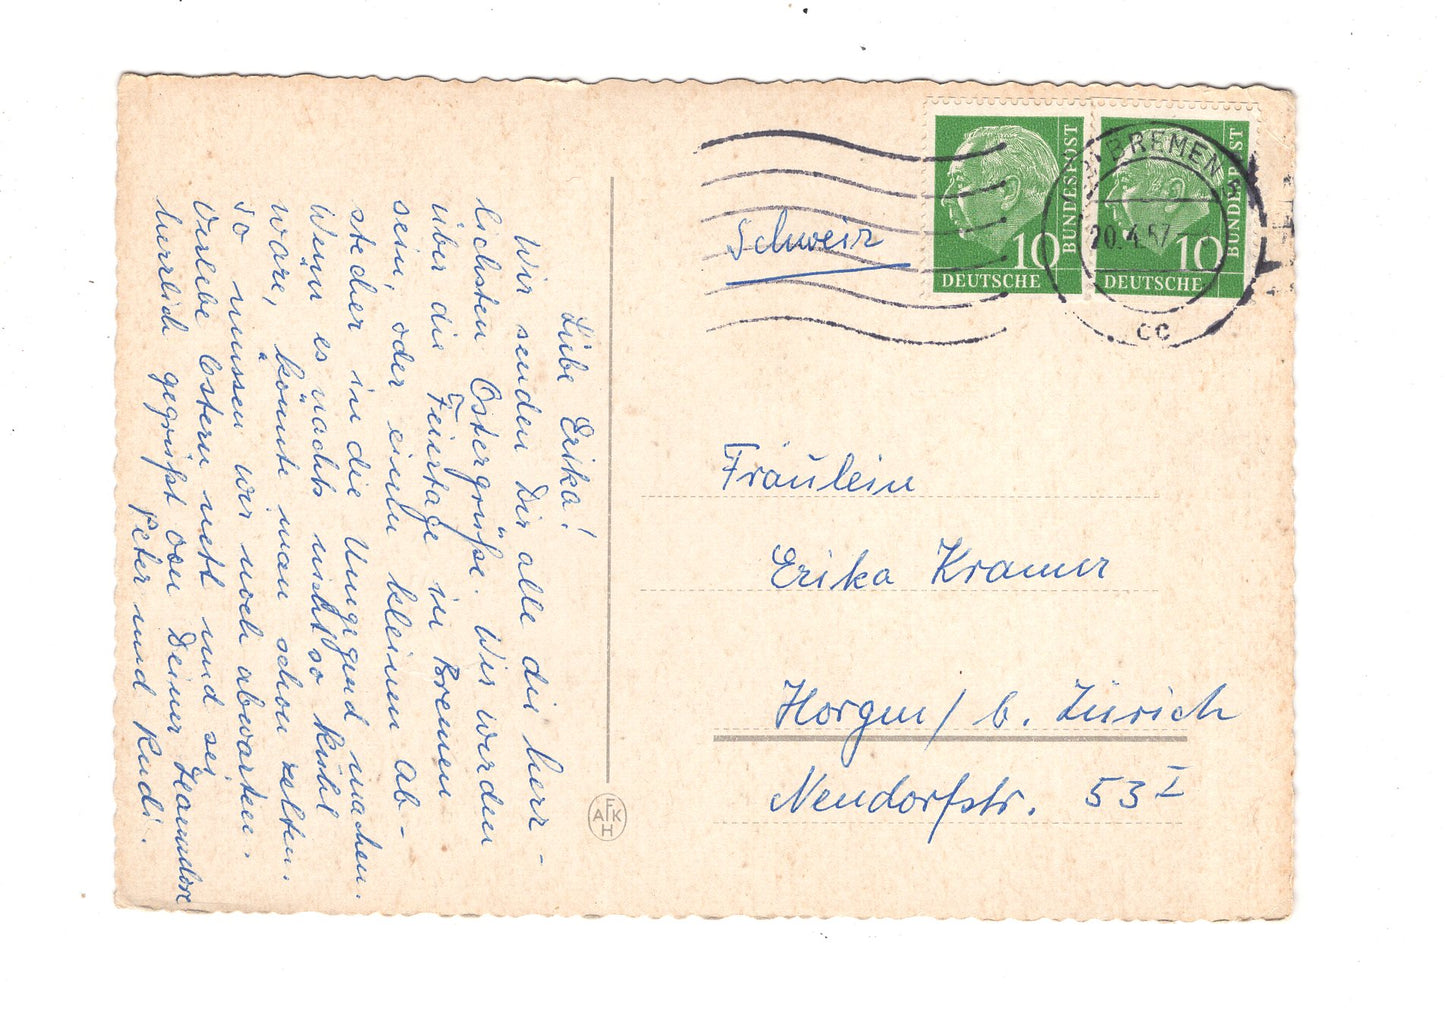 Liebe Erika!
Wir senden Dir alle die herz-
lichsten Ostergrüße. Wir werden
über die Feiertage in Bremen
sein, oder einen kleinen Ab-
stecher in die Umgegend machen.
Wenn es nachts nicht so kühl
wäre, könnte man schon zelten.
So müssen wir noch abwarten.
Verlebe Ostern nett und sei
herzlich gegrüßt von Deiner Hannelore
Peter und Rudi.
Schweiz
10
BUNDESPOST
DEUTSCHE
10
BUNDESPOST
DEUTSCHE
BREMEN
20.4.57
cc
Fräulein
Erika Kramer
Horgen / b. Zürich
Neudorfstr. 53 I
AFKH